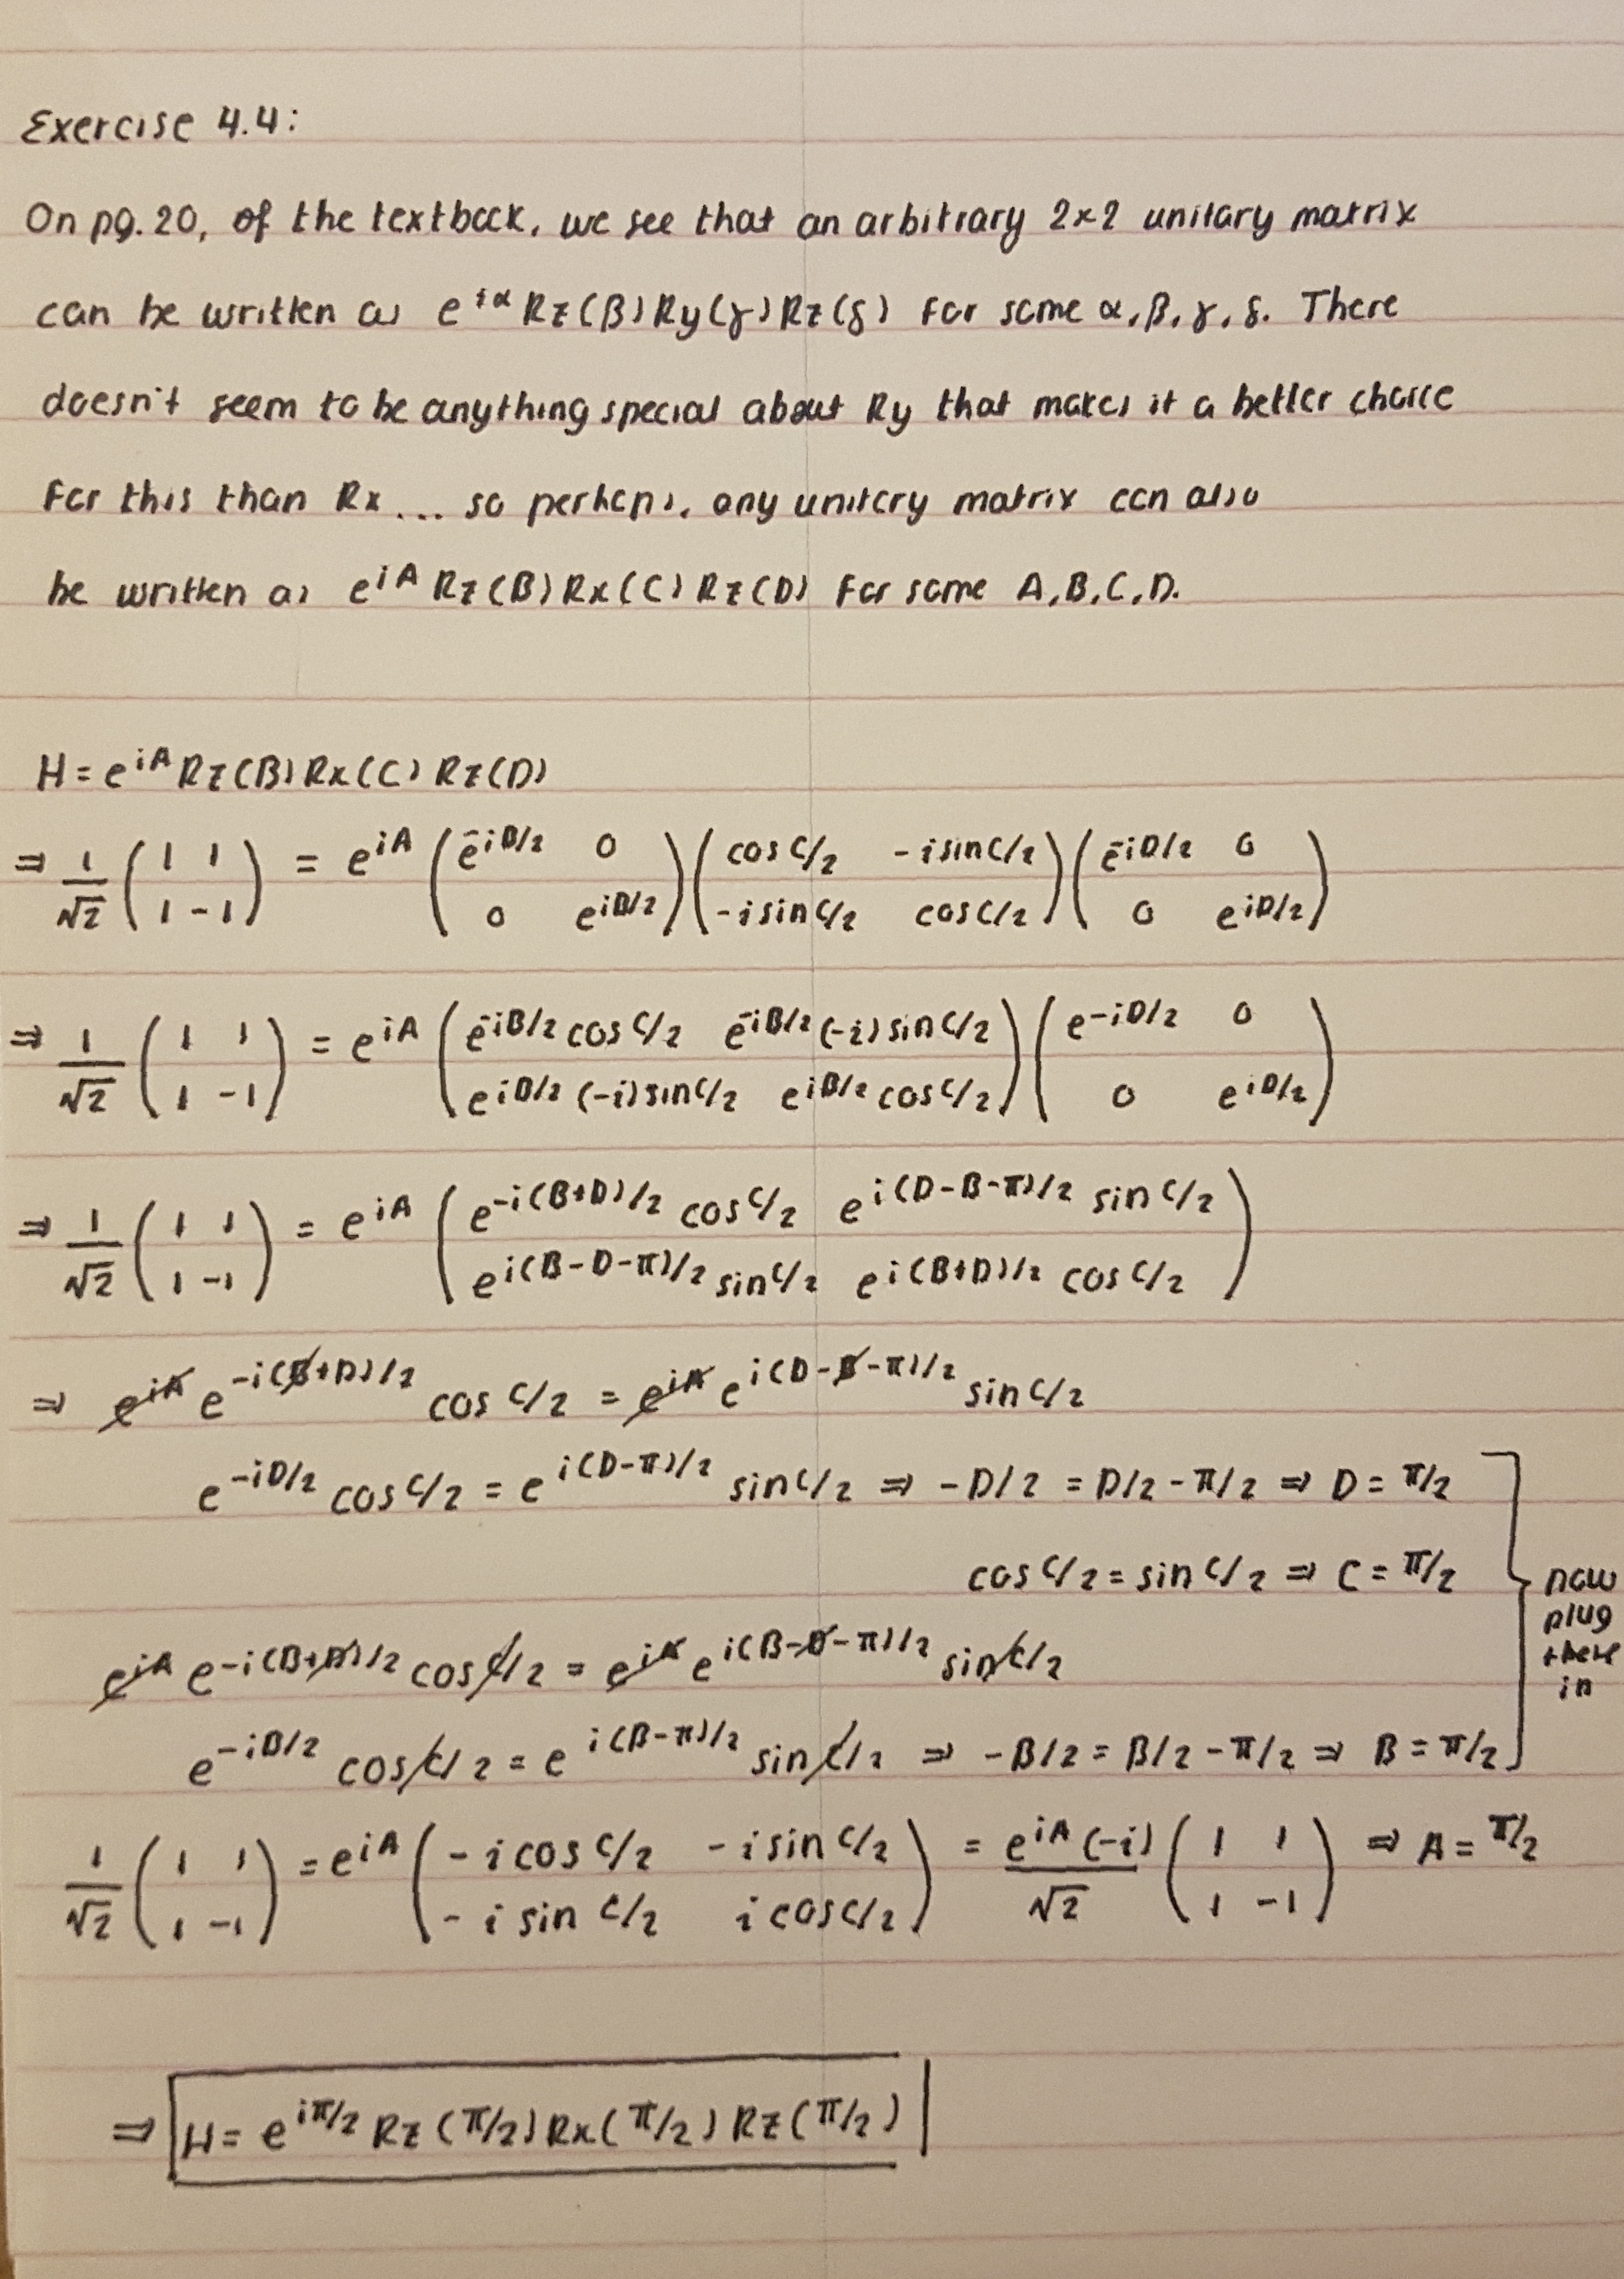 Exercise 4.4:
On pg. 20, of the textbook, we see that an arbitrary 2×2 unitary matrix
can be written as e^{iα} Rz(β) Ry(γ) Rz(δ) for some α, β, γ, δ. There
doesn't seem to be anything special about Ry that makes it a better choice
for this than Rx ... so perhaps, any unitary matrix can also
be written as e^{iA} Rz(B) Rx(C) Rz(D) for some A, B, C, D.
H = e^{iA} Rz(B) Rx(C) Rz(D)
⇒ 1/√2 (1 1; 1 -1) = e^{iA} (e^{-iB/2} 0; 0 e^{iB/2}) (cos C/2 -i sin C/2; -i sin C/2 cos C/2) (e^{-iD/2} 0; 0 e^{iD/2})
⇒ 1/√2 (1 1; 1 -1) = e^{iA} (e^{-iB/2} cos C/2 e^{-iB/2} (-i) sin C/2; e^{iB/2} (-i) sin C/2 e^{iB/2} cos C/2) (e^{-iD/2} 0; 0 e^{iD/2})
⇒ 1/√2 (1 1; 1 -1) = e^{iA} (e^{-i(B+D)/2} cos C/2 e^{i(D-B-π)/2} sin C/2; e^{i(B-D-π)/2} sin C/2 e^{i(B+D)/2} cos C/2)
⇒ e^{iA} e^{-i(B+D)/2} cos C/2 = e^{iA} e^{i(D-B-π)/2} sin C/2
e^{-iD/2} cos C/2 = e^{i(D-π)/2} sin C/2 ⇒ -D/2 = D/2 - π/2 ⇒ D = π/2
cos C/2 = sin C/2 ⇒ C = π/2
now
plug
these
in
e^{iA} e^{-i(B+D)/2} cos C/2 = e^{iA} e^{i(B-D-π)/2} sin C/2
e^{-iB/2} cos C/2 = e^{i(B-π)/2} sin C/2 ⇒ -B/2 = B/2 - π/2 ⇒ B = π/2
1/√2 (1 1; 1 -1) = e^{iA} (-i cos C/2 -i sin C/2; -i sin C/2 i cos C/2) = e^{iA} (-i)/√2 (1 1; 1 -1) ⇒ A = π/2
⇒ H = e^{iπ/2} Rz(π/2) Rx(π/2) Rz(π/2)